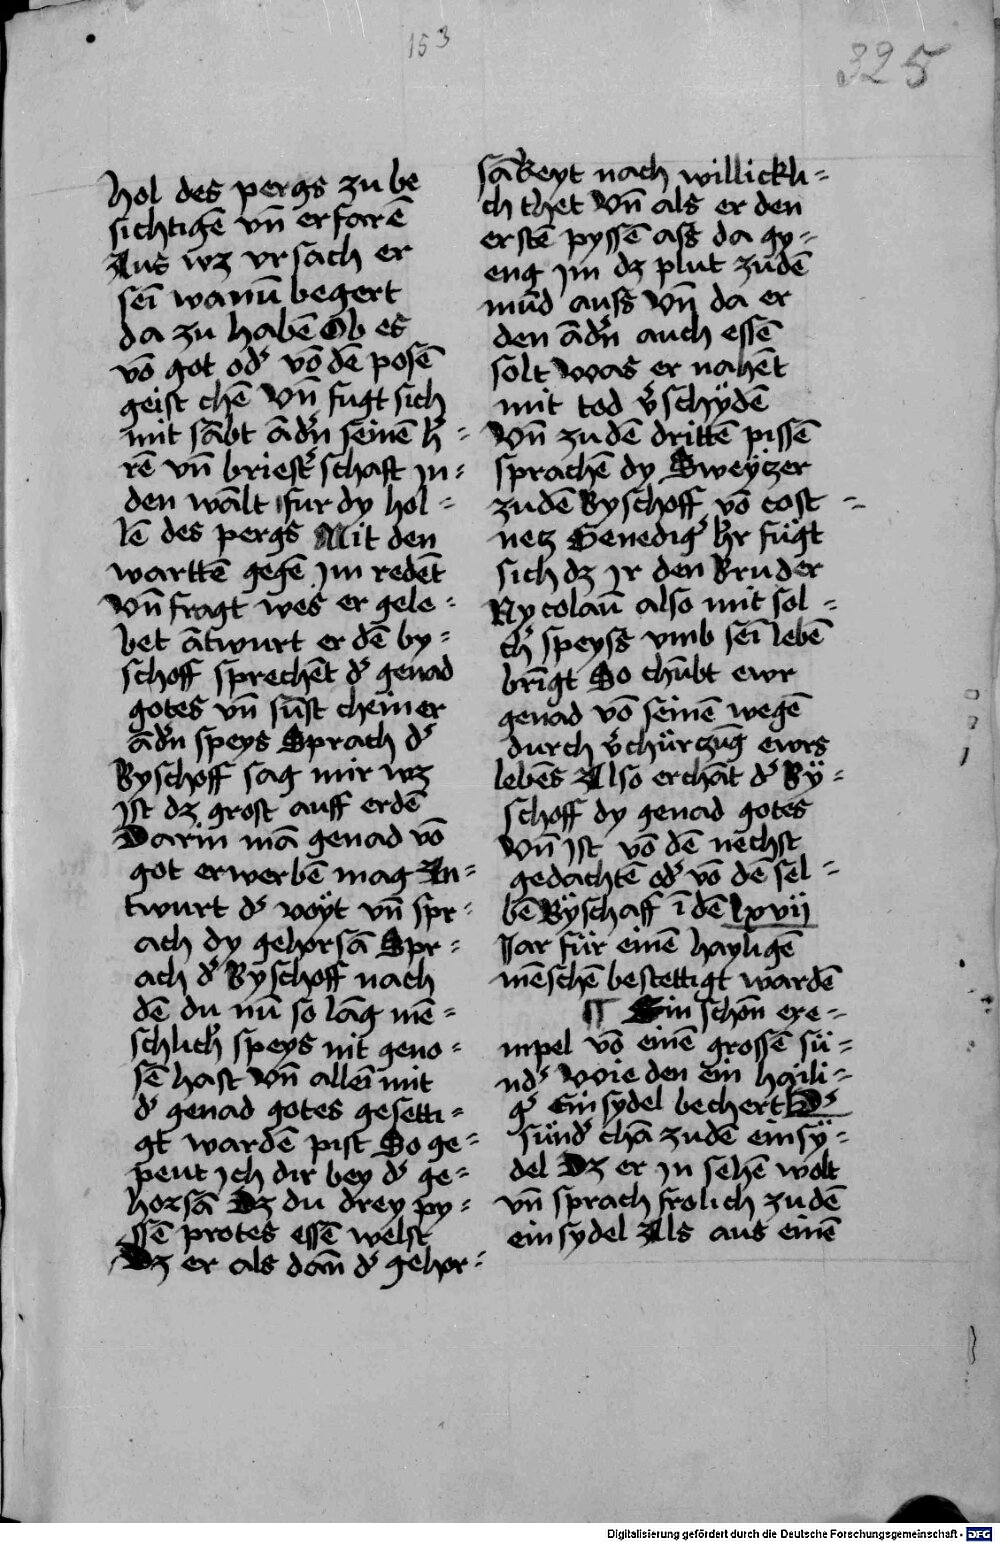 153
325
hol des pergs zu be
sichtigē vn̄ erfarē
Aus wz vrsach er
sei wanū begert
da zu habē Ob es
vō got od' vō dē posē
geist chē Vn̄ fugt sich
mit sābt ād'n seinē h' =
rē vn̄ briest' schaft in =
den wālt fur dy hol =
lē des pergs Mit den
warttē gegē Im redēt
Vn̄ fragt wes er gele =
bet ātwurt er dē by =
schoff sprechēt d' genad
gotes vn̄ sūst cheiner
ād'n speys Sprach d'
Byschoff sag mir wz
Ist dz grost auff erdē
Darin mā genad vō
got erwerbē mag An =
twurt d' voyt vn̄ spr =
ach dy gehorsā Spr =
ach d' Byschoff nach
dē du nū so lāg mē =
schlich' speys nit geno =
sē hast Vn̄ alleī mit
d' genad gotes gesetti =
gt wardē pist So ge =
peut Ich dir bey d' ge =
horsā Dz du drey py =
ssē protes essē welst
Dz er als dan̄ d' gehor =
sākeyt nach willickli =
ch thet Vn̄ als er den
erstē pyssē ass da gy =
eng Im dz plut zudē
mūd auss Vn̄ da er
den ād'n auch essē
solt Was er nahēt
mit tod v'schydē
Vn̄ zu dē drittē pissē
sprachē dy Sweytzer
zu dē Byschoff vō cost =
netz Genedig' h'r fügt
sich dz Ir den Bruder
Nycolaū also mit sol =
ch' speyss vmb seī lebē
brīgt So chūbt ewr
genad vō seinē wegē
durch v'chürczūg ewrs
lebēs Also erchāt d' By =
schoff dy genad gotes
Vn̄ Ist vō dē nechst
gedachtē od' vō dē sel =
bē Byschaff ī dē lxvij
Jar für einē hayligē
mēschē bestettigt wardē
¶ Ein schōn exe =
mpel vō einē grossē sü =
nd' Wie den ein haili =
g' Einsydel bechert D'
sünd' chā zu dē einsy =
del Dz er In sehē wolt
vn̄ sprach frolich zu dē
einsydel Als aus einē
Digitalisierung gefördert durch die Deutsche Forschungsgemeinschaft - DFG